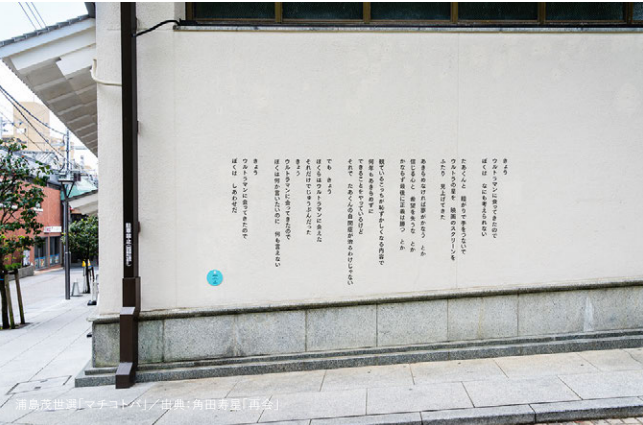 きょう
ウルトラマンに会ってきたので
ぼくは なにも考えられない
たあくんと 暗がりで手をつないで
ウルトラの星を 映画のスクリーンを
ふたり 見上げてきた
あきらめなければ夢がかなう とか
信じる心と 希望を失うな とか
かならず最後に正義は勝つ とか
観ているこっちが恥ずかしくなる内容で
何年もあきらめずに
できることをやっているけど
それで たあくんの自閉症が治るわけじゃない
でも きょう
ぼくらはウルトラマンに会えた
それだけでじゅうぶんだった
きょう
ウルトラマンに会ってきたので
ぼくは何か言いたいのに 何も言えない
きょう
ウルトラマンに会ってきたので
ぼくは しあわせだ
浦島茂世選「マチコトバ」／出典：角田寿星「再会」